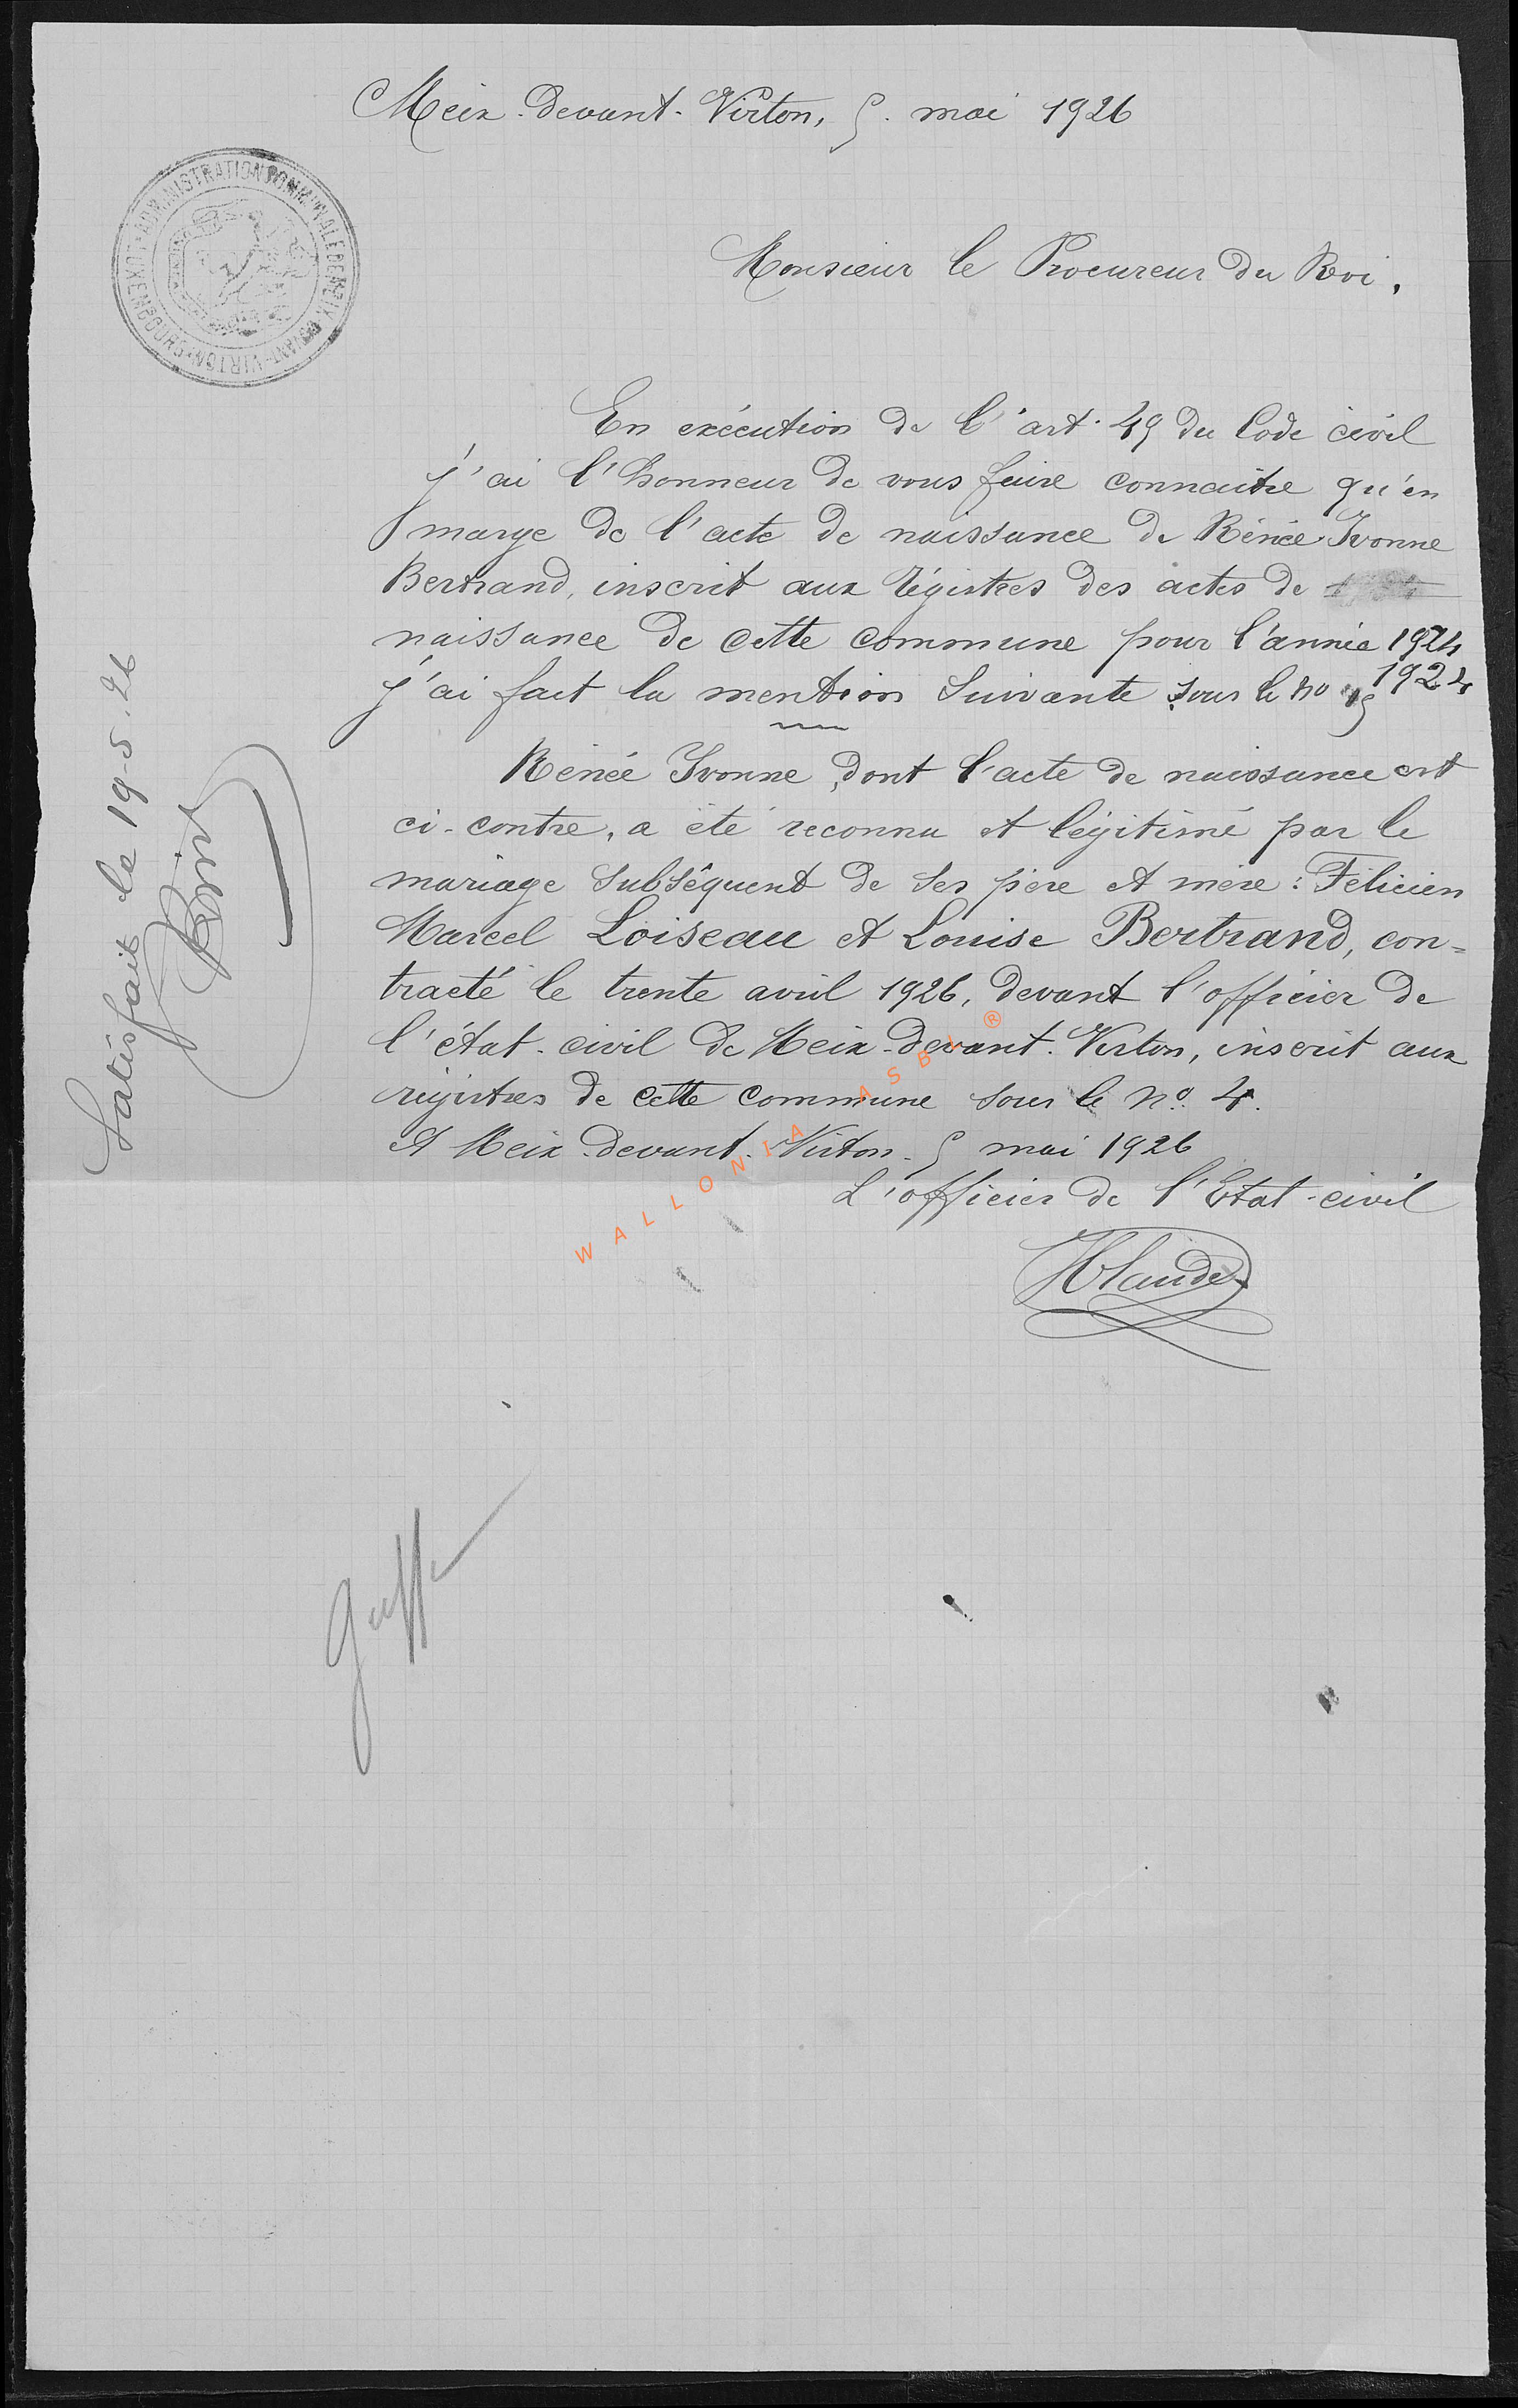 Meix-devant-Virton, 5. mai 1926
ADMINISTRATION COMMUNALE DE MEIX-DEVANT-VIRTON
LUXEMBOURG
Monsieur le Procureur du Roi,
En exécution de l'art. 49 du Code civil
j'ai l'honneur de vous faire connaitre qu'en
marge de l'acte de naissance de Rénée Yvonne
Bertrand, inscrit aux régistres des actes de
naissance de cette commune pour l'année 1924
1924
j'ai fait la mention suivante sous le no
Rénée Yvonne, dont l'acte de naissance est
ci-contre, a été reconnu et légitimé par le
mariage subséquent de ses père et mère : Félicien
Marcel Loiseau et Louise Bertrand, con=
tracté le trente avril 1926, devant l'officier de
l'état-civil de Meix-devant-Virton, inscrit aux
régistres de cette commune sous le no. 4.
A Meix-devant-Virton. 5 mai 1926
L'officier de l'Etat-civil
Satisfait le 19-5-26
WALLONIA ASBL ®